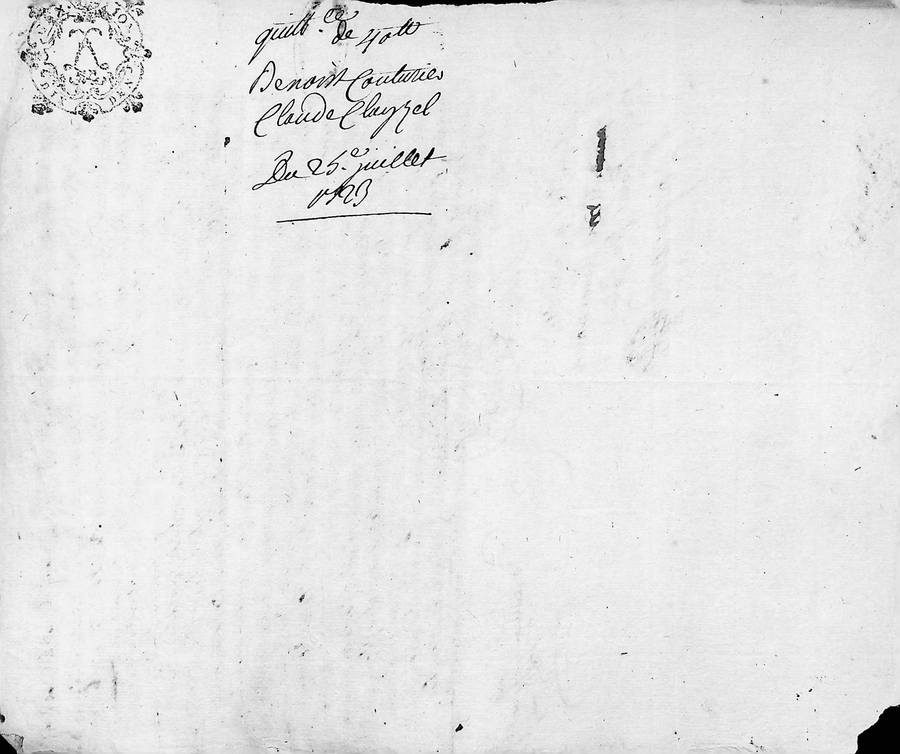 quitt.ce de 40tt
Benoist Couturier
Claude Clayzel
Du 25.e juillet
1723